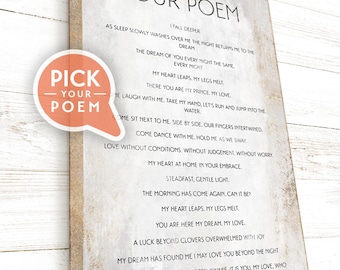 YOUR POEM
I FALL DEEPER
AS SLEEP SLOWLY WASHES OVER ME THE NIGHT RETURNS ME TO THE
DREAM
THE DREAM OF YOU EVERY NIGHT THE SAME,
EVERY NIGHT
MY HEART LEAPS, MY LEGS MELT.
THERE YOU ARE MY PRINCE, MY LOVE.
LAUGH WITH ME, TAKE MY HAND, LET'S RUN AND JUMP INTO THE
WATER.
COME SIT NEXT TO ME, SIDE BY SIDE, OUR FINGERS INTERTWINED.
COME DANCE WITH ME, HOLD ME AS WE SWAY
LOVE WITHOUT CONDITIONS, WITHOUT JUDGEMENT, WITHOUT WORRY.
MY HEART AT HOME IN YOUR EMBRACE.
STEADFAST, GENTLE LIGHT.
THE MORNING HAS COME AGAIN, CAN IT BE?
MY HEART LEAPS, MY LEGS MELT,
YOU ARE HERE MY DREAM, MY LOVE.
A LUCK BEYOND CLOVERS OVERWHELMED WITH JOY
MY DREAM HAS FOUND ME I MAY LOVE YOU BEYOND THE NIGHT
IT IS YOU, MY LOVE, WHO
PICK
YOUR
POEM